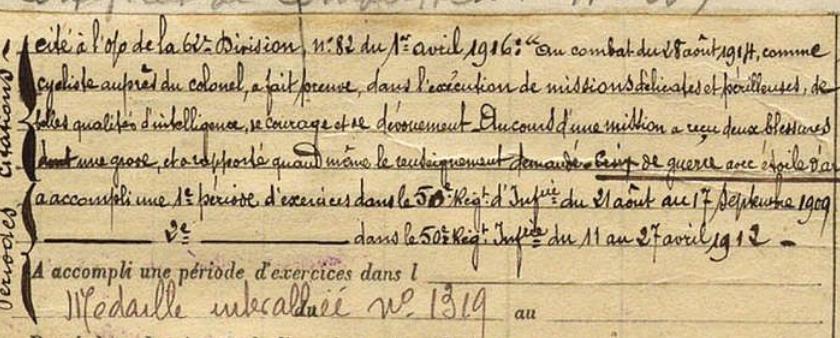 Citations
cité à l'o/o de la 62e Division, n° 82 du 1er avril 1916: "Au combat du 28 août 1914, comme
cycliste auprès du colonel, a fait preuve, dans l'exécution de missions délicates et périlleuses, de
belles qualités d'intelligence, de courage et de dévouement. Au cours d'une mission a reçu deux blessures
dont une grave, et a rapporté quand même le renseignement demandé - Croix de guerre avec étoile d'ar
Périodes
a accompli une 1e période d'exercices dans le 50e Régt d'Infrie du 21 août au 17 Septembre 1909
2e dans le 50e Régt Infrie du 11 au 27 avril 1912 -
A accompli une période d'exercices dans l
Médaille interalliée n° 1319
du au